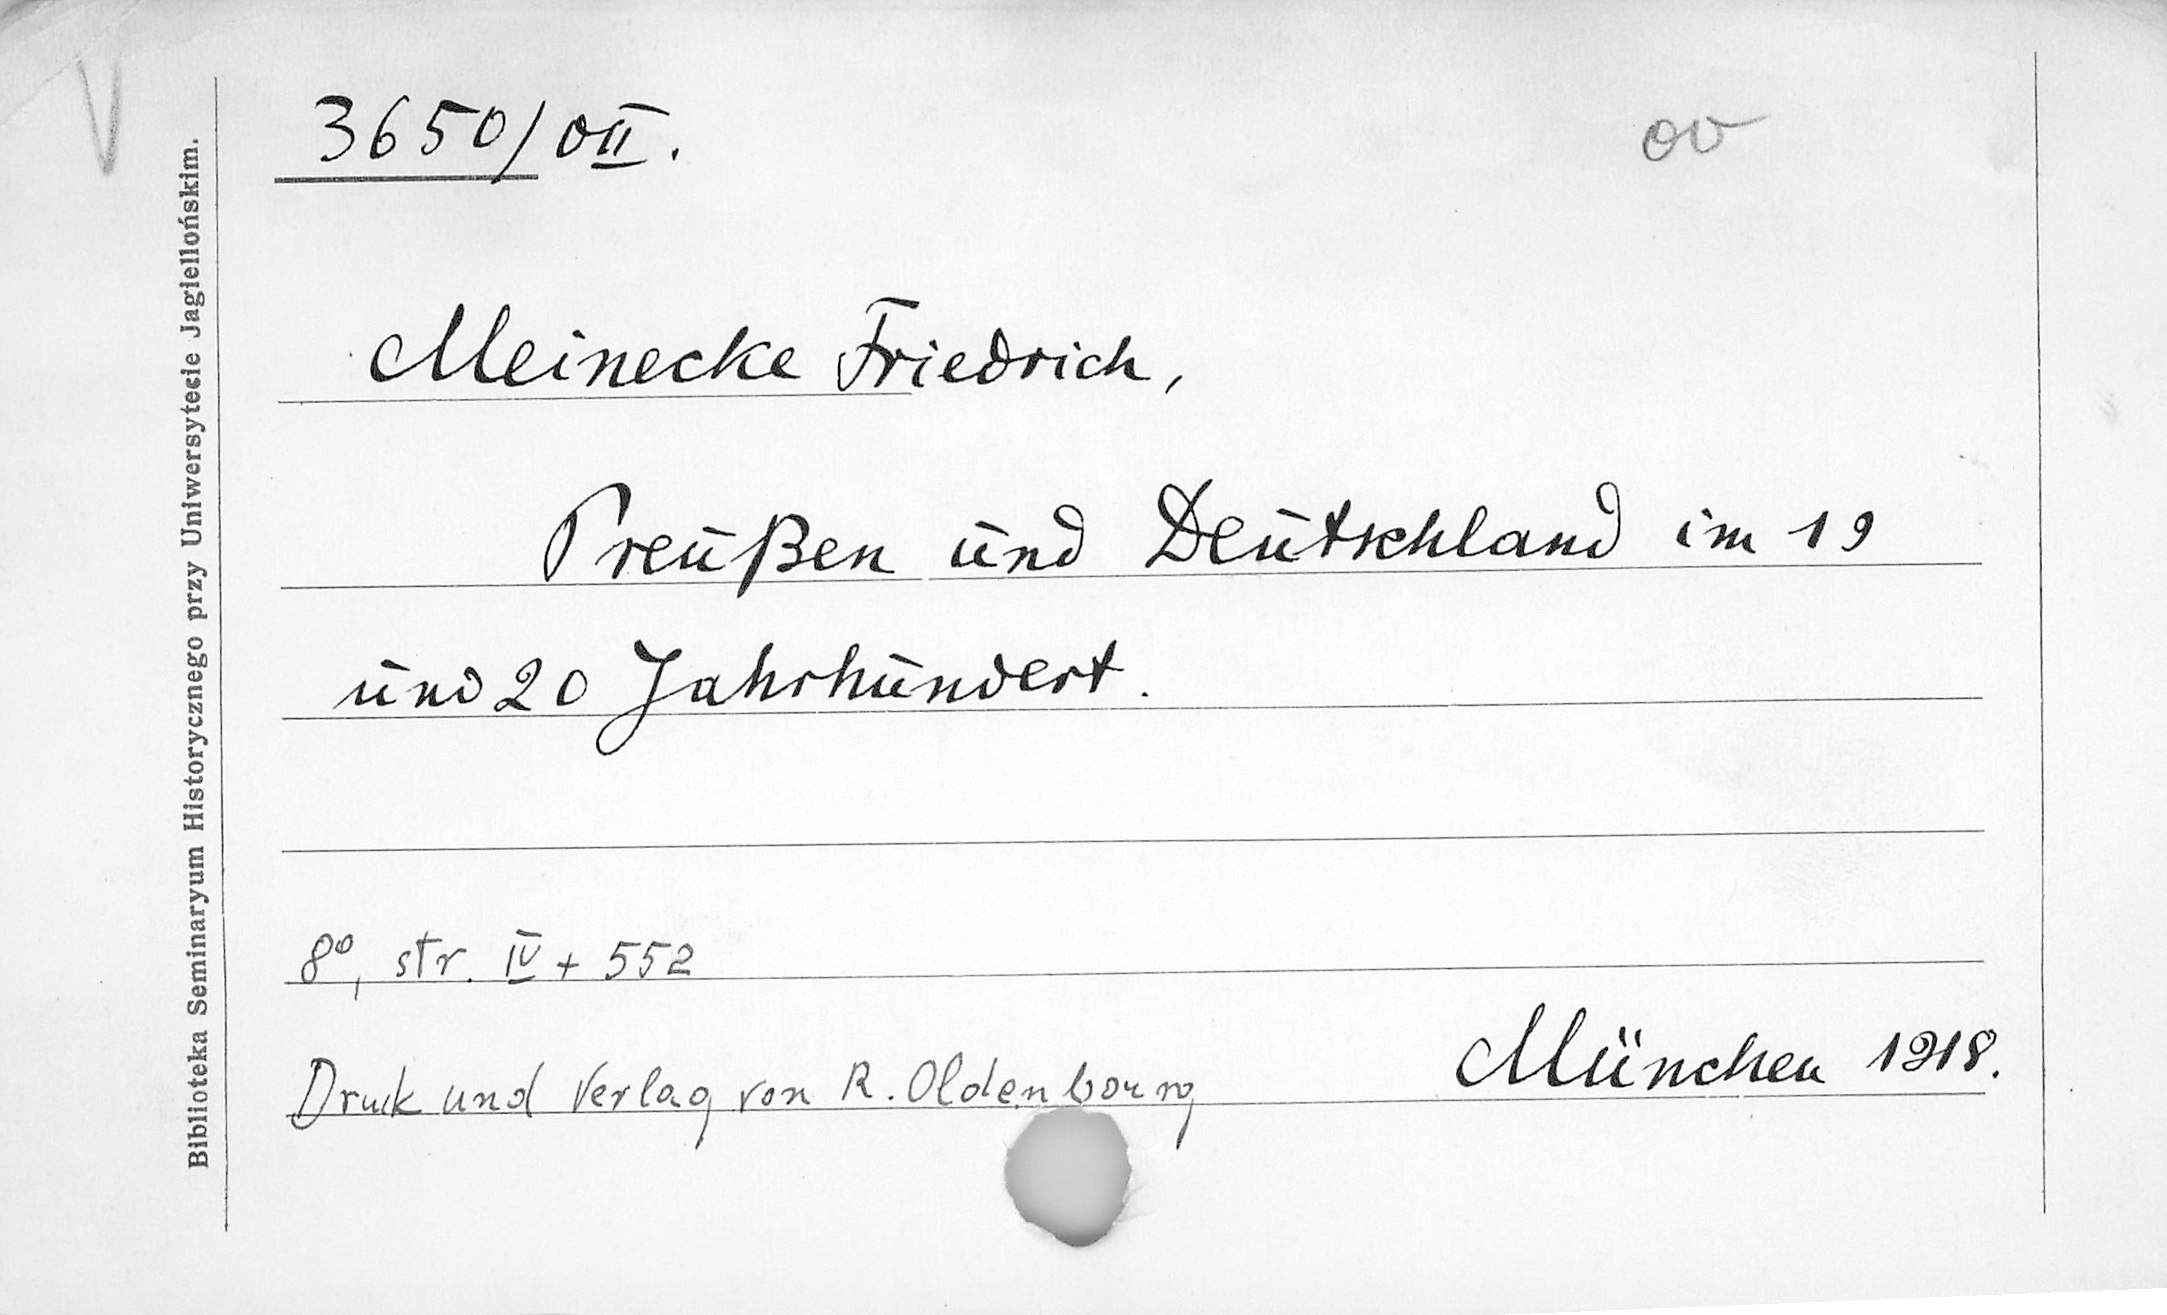 3650/OII.
Meinecke Friedrich,
Preußen und Deutschland im 19
und 20 Jahrhundert.
8º, str. IV + 552
Druck und Verlag von R. Oldenbourg
München 1918.
Biblioteka Seminaryum Historycznego przy Uniwersytecie Jagiellońskim.